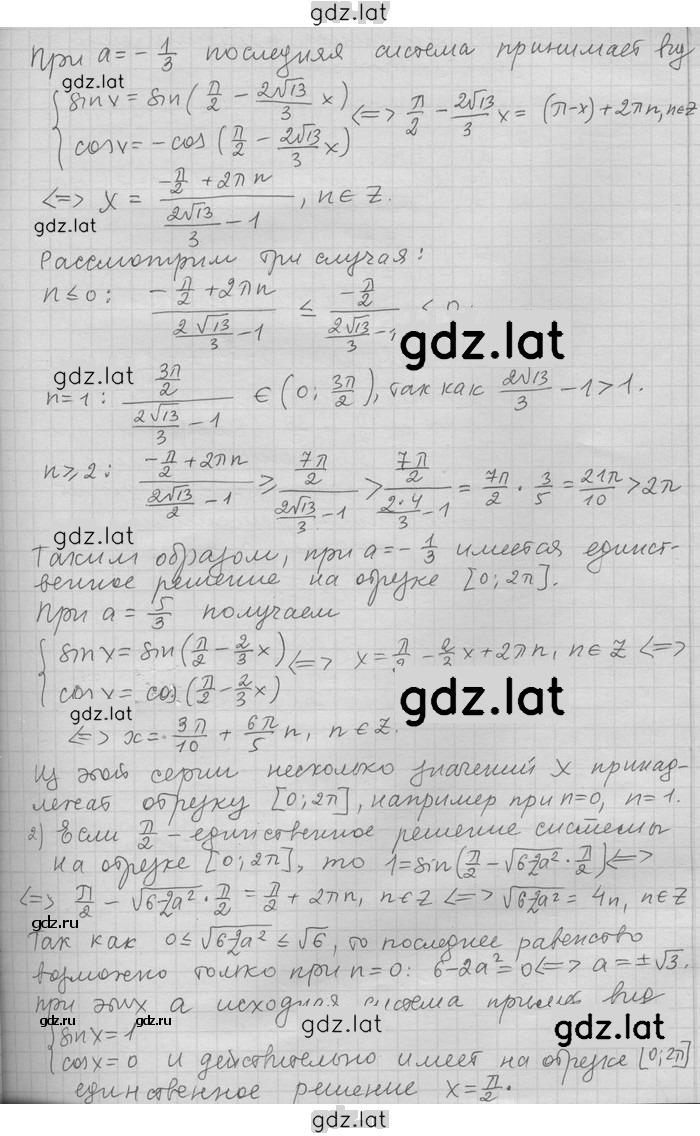 gdz.lat
При a = - 1/3 последняя система принимает вид
gdz.lat
{ sin x = sin(π/2 - 2√13/3 x)
{ cos x = -cos(π/2 - 2√13/3 x) <=> π/2 - 2√13/3 x = (π-x) + 2πn, n∈Z
<=> x = (-π/2 + 2πn)/(2√13/3 - 1), n∈Z.
gdz.lat
Рассмотрим три случая:
n ≤ 0: (-π/2 + 2πn)/(2√13/3 - 1) ≤ (-π/2)/(2√13/3 - 1)
gdz.lat
gdz.lat
n = 1: (3π/2)/(2√13/3 - 1) ∈ (0; 3π/2), так как 2√13/3 - 1 > 1.
n ≥ 2: (-π/2 + 2πn)/(2√13/2 - 1) ≥ (7π/2)/(2√13/3 - 1) > (7π/2)/(2·4/3 - 1) = 7π/2 · 3/5 = 21π/10 > 2π
gdz.lat
Таким образом, при a = - 1/3 имеется единст-
венное решение на отрезке [0; 2π].
При a = 5/3 получаем
{ sin x = sin(π/2 - 2/3 x)
{ cos x = cos(π/2 - 2/3 x) <=> x = π/2 - 2/3 x + 2πn, n∈Z <=>
gdz.lat
gdz.lat
<=> x = 3π/10 + 6π/5 n, n∈Z.
Из этой серии несколько значений x принад-
лежат отрезку [0; 2π], например при n=0, n=1.
2) Если π/2 - единственное решение системы
на отрезке [0; 2π], то 1 = sin(π/2 - √(6-2a²) · π/2) <=>
<=> π/2 - √(6-2a²) · π/2 = π/2 + 2πn, n∈Z <=> √(6-2a²) = 4n, n∈Z
gdz.ru
gdz.lat
Так как 0 ≤ √(6-2a²) ≤ √6, то последнее равенство
возможно только при n=0: 6-2a² = 0 <=> a = ±√3.
gdz.ru
gdz.lat
При этих a исходная система примет вид
gdz.lat
gdz.lat
{ sin x = 1
{ cos x = 0 и действительно имеет на отрезке [0; 2π]
единственное решение x = π/2.
gdz.lat